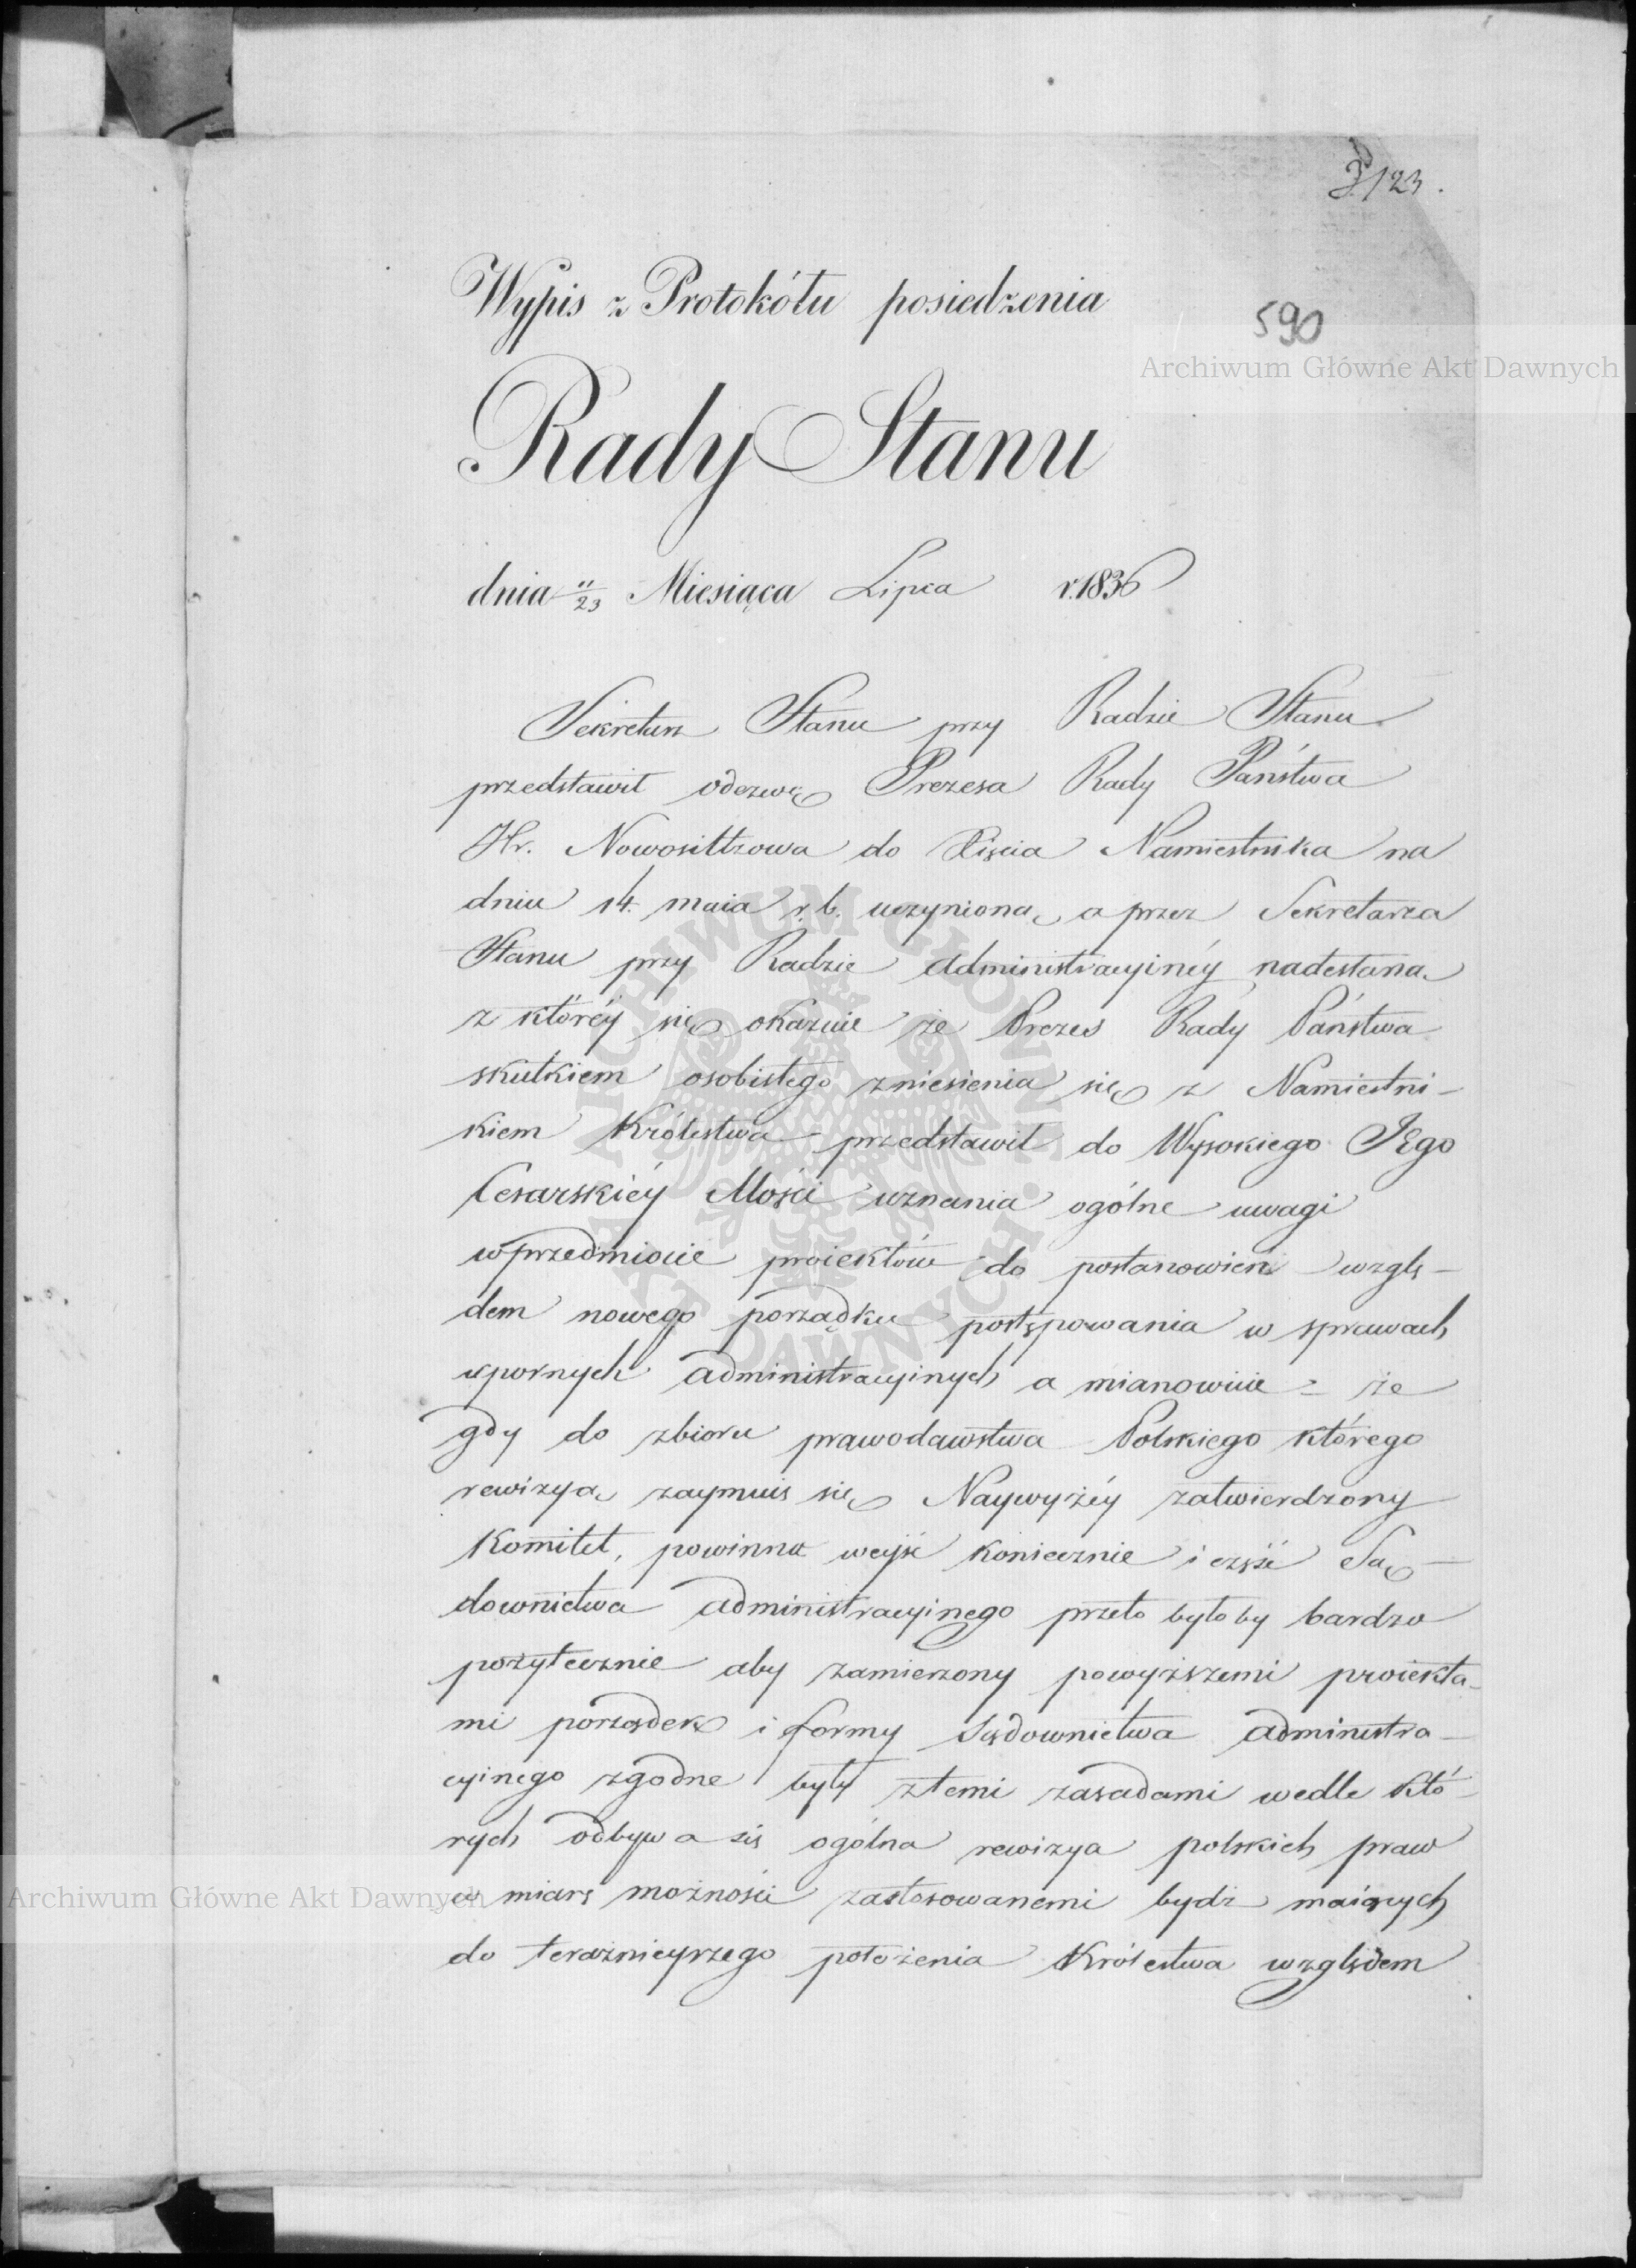 123.
Wypis z Protokółu posiedzenia
590
Archiwum Główne Akt Dawnych
Rady Stanu
dnia 11/23 Miesiąca Lipca r. 1836
Sekretarz Stanu przy Radzie Stanu
przedstawił odezwę Prezesa Rady Państwa
Hr. Nowosiltzowa do Xięcia Namiestnika na
dniu 14. maia r. b. uczynioną a przez Sekretarza
Stanu przy Radzie Administracyinéy nadesłaną
z któréy się okazuie że Prezes Rady Państwa
skutkiem osobistego zniesienia się z Namiestni-
kiem Królestwa przedstawił do Wysokiego Jego
Cesarskiéy Mości uznania ogólne uwagi
w przedmiocie proiektów do postanowień wzglę-
dem nowego porządku postępowania w sprawach
spornych administracyinych a mianowicie = że
gdy do zbioru prawodawstwa Polskiego którego
rewizyą zaymuie się Naywyżéy zatwierdzony
Komitet, powinna weyść koniecznie i część Są-
downictwa administracyinego przeto byłoby bardzo
pożytecznie aby zamierzony powyższemi proiekta-
mi porządek i formy Sądownictwa administra-
cyinego zgodne były z temi zasadami wedle któ-
rych odbywa się ogólna rewizya polskich praw
w miarę możności zastosowanemi bydź maiących
do teraźnieyszego położenia Królestwa względem
Archiwum Główne Akt Dawnych
ARCHIWUM GŁÓWNE AKT DAWNYCH